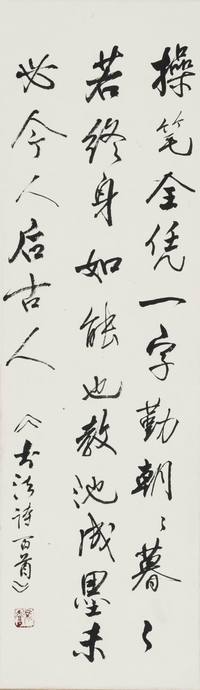 操笔全凭一字勤朝〻暮〻
若终身如能也教池成墨未
必今人后古人
《书法诗百首》